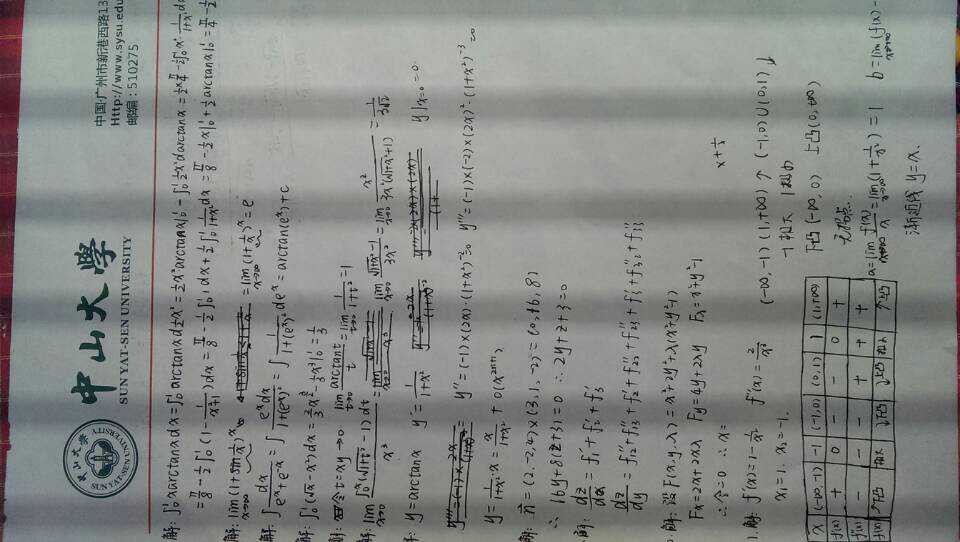 中山大學
SUN YAT-SEN UNIVERSITY
中国·广州市新港西路13
Http://www.sysu.edu
邮编：510275
解: ∫₀¹ x arctanx dx = ∫₀¹ arctanx d½x² = ½x² arctanx|₀¹ - ∫₀¹ ½x² d arctanx = ½×π/4 - ½∫₀¹ x²·1/(1+x²) dx
= π/8 - ½∫₀¹ (1 - 1/(x²+1)) dx = π/8 - ½∫₀¹ 1 dx + ½∫₀¹ 1/(1+x²) dx = π/8 - ½x|₀¹ + ½arctanx|₀¹ = π/4 - ½
解: lim x→∞ (1+sin 1/x)^x = lim x→∞ (1+1/x)^x = e
解: ∫ dx/(e^x+e^-x) = ∫ e^x dx/(1+(e^x)²) = ∫ 1/(1+(e^x)²) de^x = arctan(e^x)+C
解: ∫₀¹ (√x - x²) dx = (2/3 x^(3/2) - 1/3 x³)|₀¹ = 1/3
解: 令t=xy→0 lim t→0 arctant/t = lim t→0 1/(1+t²) = 1
解: lim x→0 ∫₀^x (√(1+t²) - 1) dt / x³ = lim x→0 (√(1+x²) - 1)/3x² = lim x→0 x²/(3x²(√(1+x²)+1))
y = arctanx y' = 1/(1+x²) y|x=0 = 0
y'' = (-1)×(2x)·(1+x²)^-2 = 0 y''' = (-1)×(-2)×(2x)²·(1+x²)^-3 = 0
y = 1/(1+x²)·x = x/(1+x²) + o(x^(2n+1))
解: n = (2,-2,4)×(3,1,-2) = (0,16,8)
∴ 16y+8(z+3)=0 ∴ 2y+z+3=0
解: dz/dx = f₁' + f₂' + f₃'
解: 设F(x,y,λ) = x²+2y²+λ(x²+y²-1)
Fx = 2x+2xλ Fy = 4y+2λy Fλ = x²+y²-1
∴ 令=0 ∴ x=
1.解: f'(x) = 1 - 1/x² f''(x) = 2/x³
x+1/x
x₁=1. x₂=-1.
(-∞,-1) (1,+∞) ↑ (-1,0)∪(0,1) ↓
-1极大 1极小
下凸 (-∞, 0) 上凸 (0,+∞)
无拐点..
x (-∞,-1) -1 (-1,0) (0,1) 1 (1,+∞)
f'(x) + 0 - - 0 +
f''(x) - - - + + +
a = lim x→∞ f(x)/x = lim x→∞ (1+1/x²) = 1 b = lim x→∞ (f(x) -
渐近线 y=x.